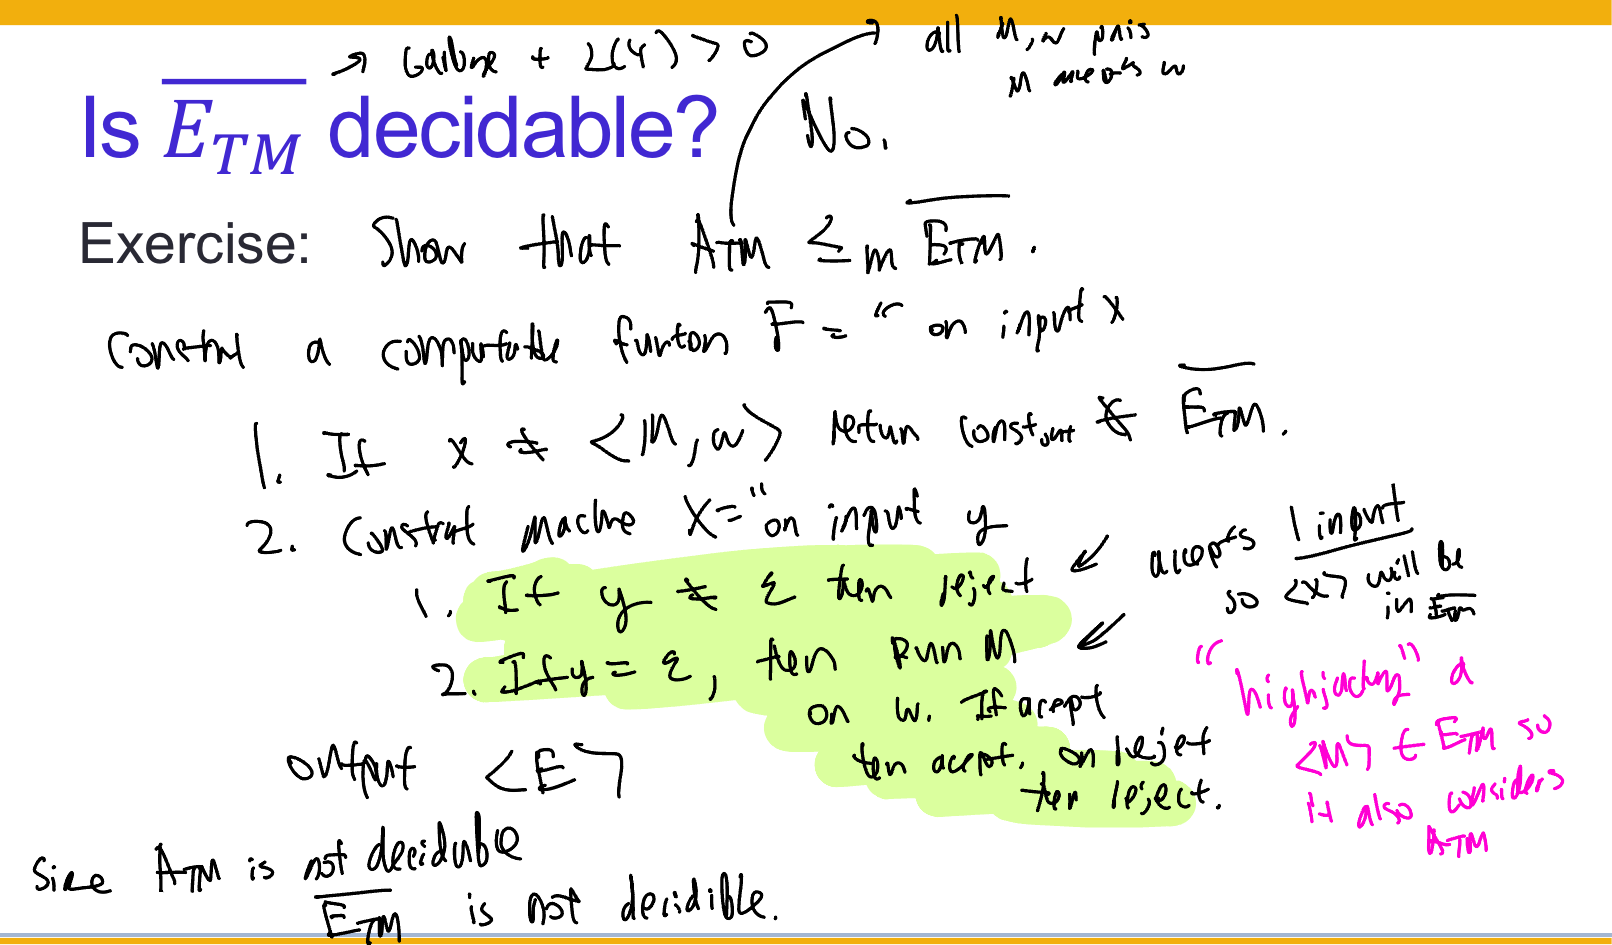 → Garbage + L(Y) > 0
all M, w pairs
M accepts w
Is \overline{E_{TM}} decidable? No.
Exercise: Show that A_{TM} ≤_m \overline{E_{TM}}.
a computable F = " on input x
1. If x ≠ <M, w> return constant ∉ \overline{E_{TM}}.
2. Construct machine X = " on input y
1. If y ≠ ε then reject
2. If y = ε, then Run M
on w. If acept
ten acept. on reject
then reject.
accepts 1 input
so <X> will be
in \overline{E_{TM}}
"highjacking" a
<M> ∈ E_{TM} so
it also considers
A_{TM}
output <E>
Since A_{TM} is not decidable
\overline{E_{TM}} is not decidible.